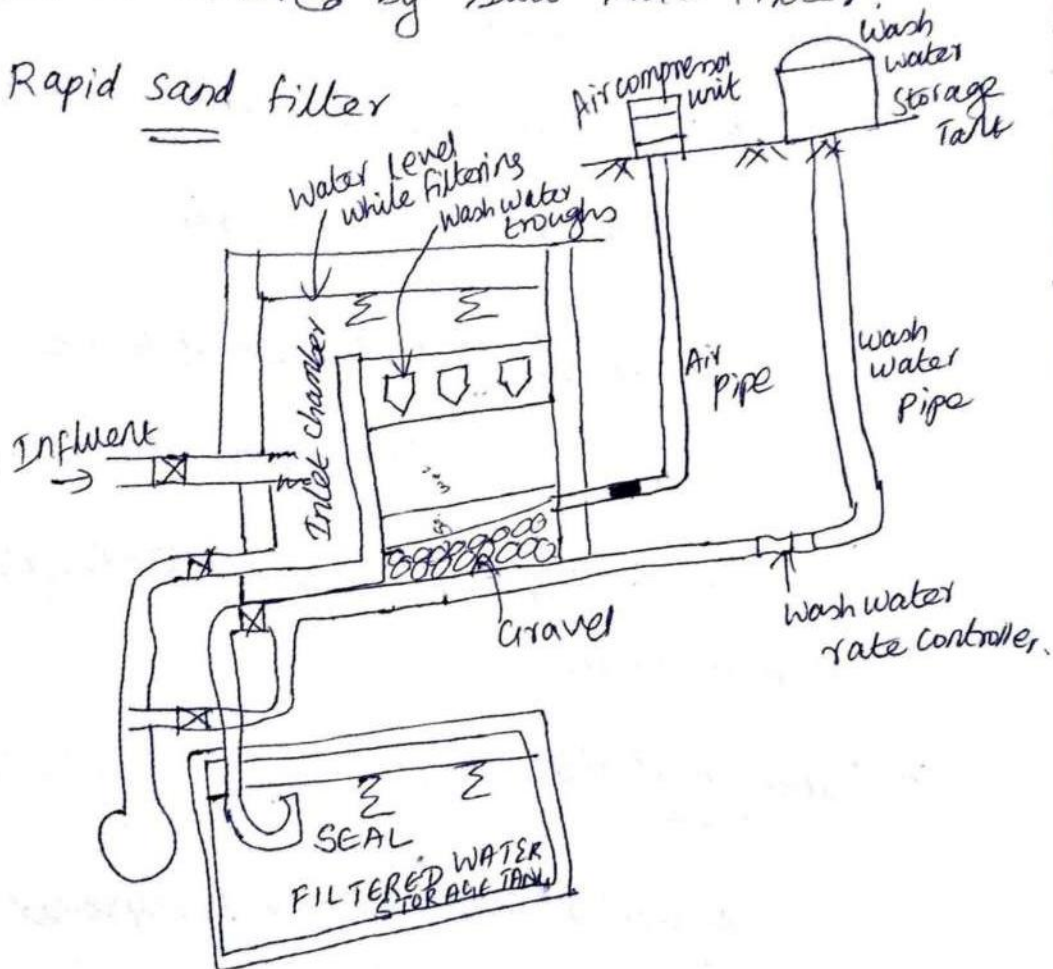 by
Rapid sand filter
Air compressor
unit
Wash
water
Storage
Tank
Water level
while filtering
Wash water
troughs
Inlet chamber
Influent
Air
pipe
Wash
water
pipe
Gravel
Wash water
rate controller.
SEAL
FILTERED WATER
STORAGE TANK